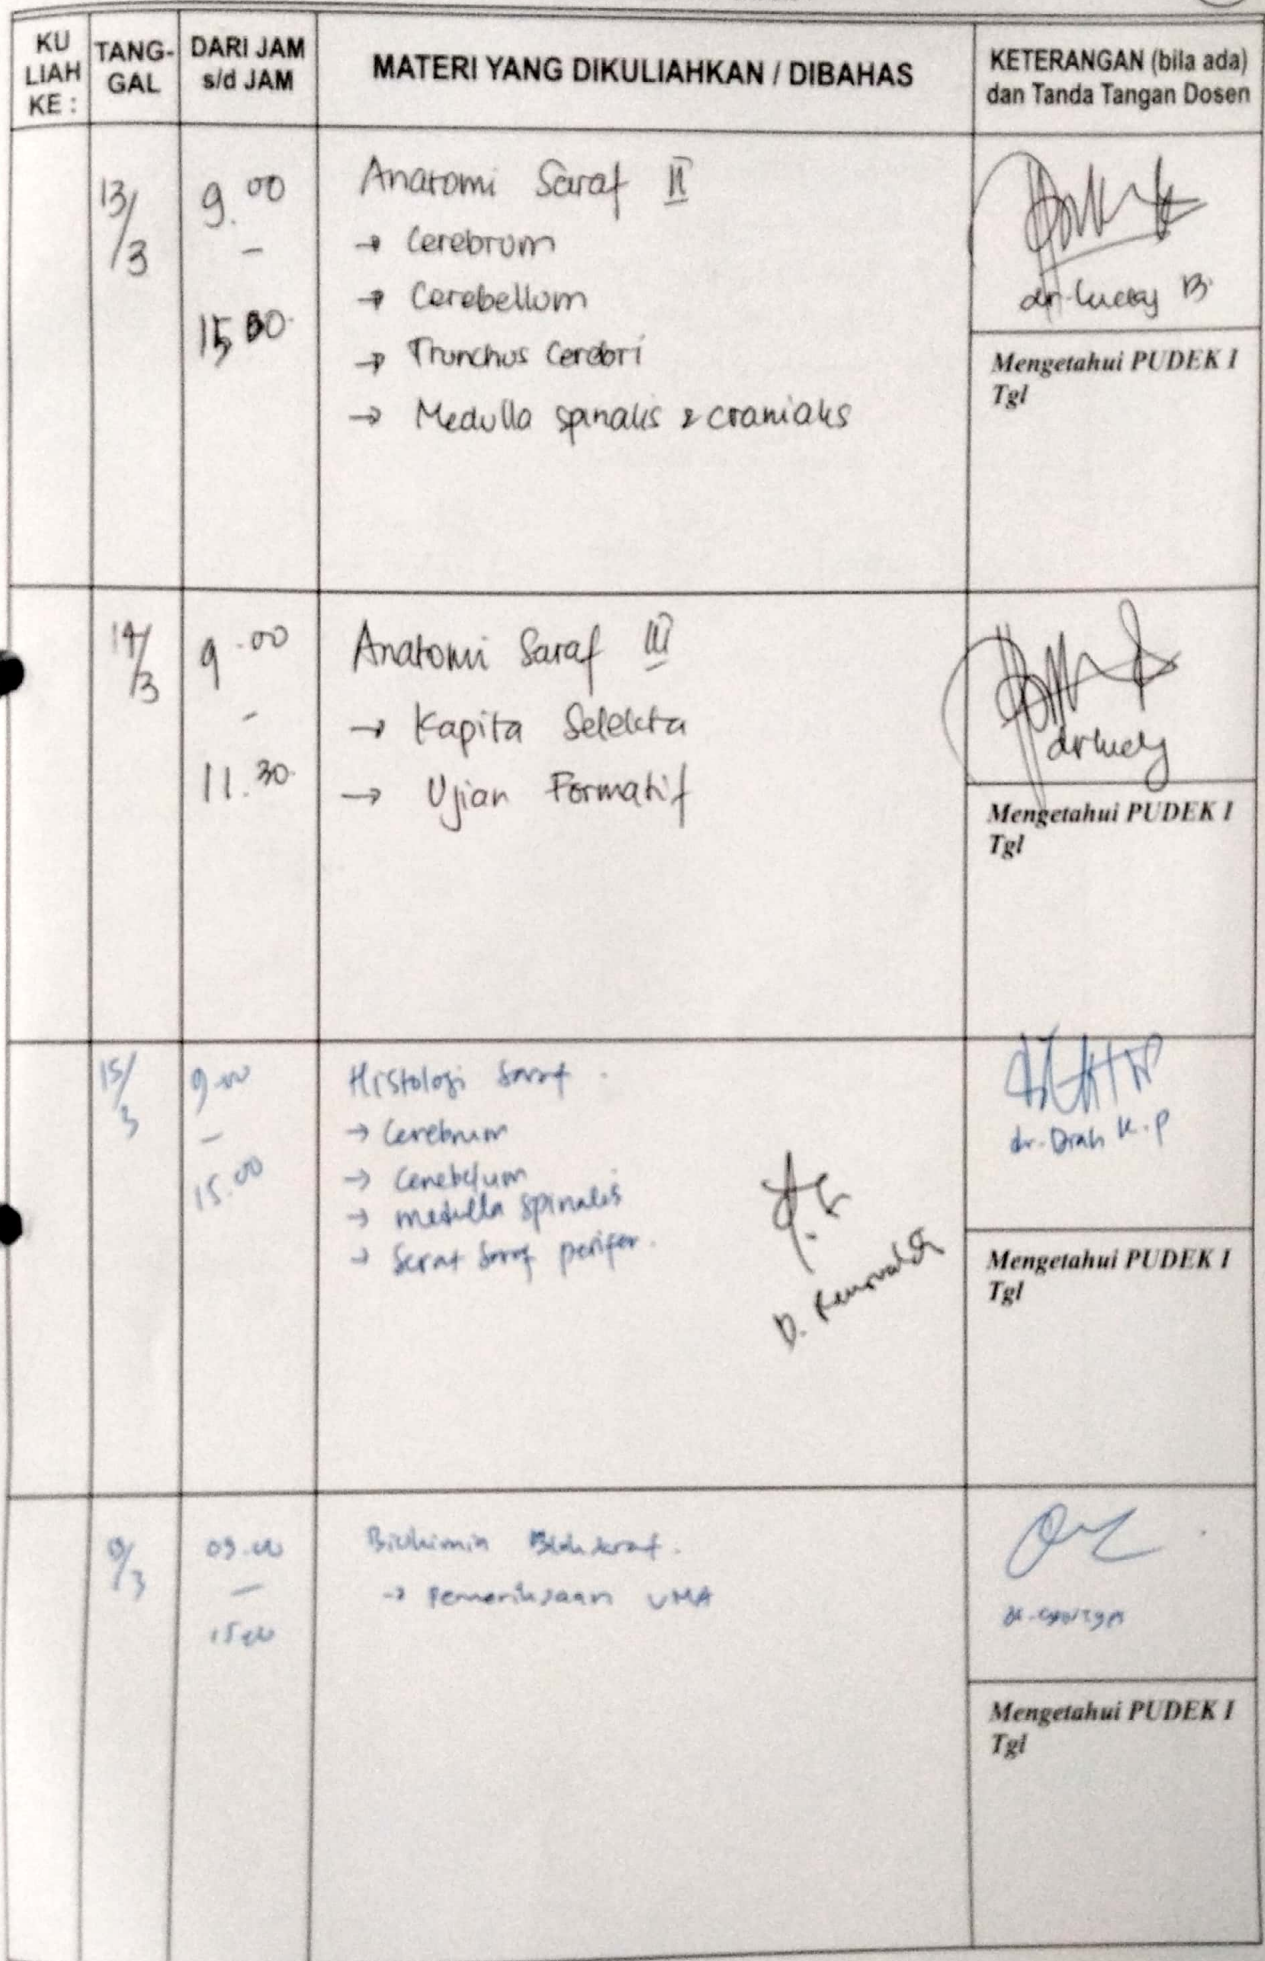 KU LIAH KE :
TANG-GAL
DARI JAM s/d JAM
MATERI YANG DIKULIAHKAN / DIBAHAS
KETERANGAN (bila ada) dan Tanda Tangan Dosen
13/3
9.00
-
15.00
Anatomi Saraf II
→ Cerebrum
→ Cerebellum
→ Trunchus Cerebri
→ Medulla spinalis & cranialis
Mengetahui PUDEK I
Tgl
14/3
9.00
-
11.30
Anatomi Saraf III
→ Kapita Selekta
→ Ujian Formatif
Mengetahui PUDEK I
Tgl
15/3
9.00
-
15.00
Histologi Saraf.
→ Cerebrum
→ Cerebelum
→ medulla spinalis
→ Serat Saraf perifer.
dr. K.P
Mengetahui PUDEK I
Tgl
/3
09.00
-
15.00
Biokimia Blok Saraf.
→ Pemeriksaan VMA
Mengetahui PUDEK I
Tgl